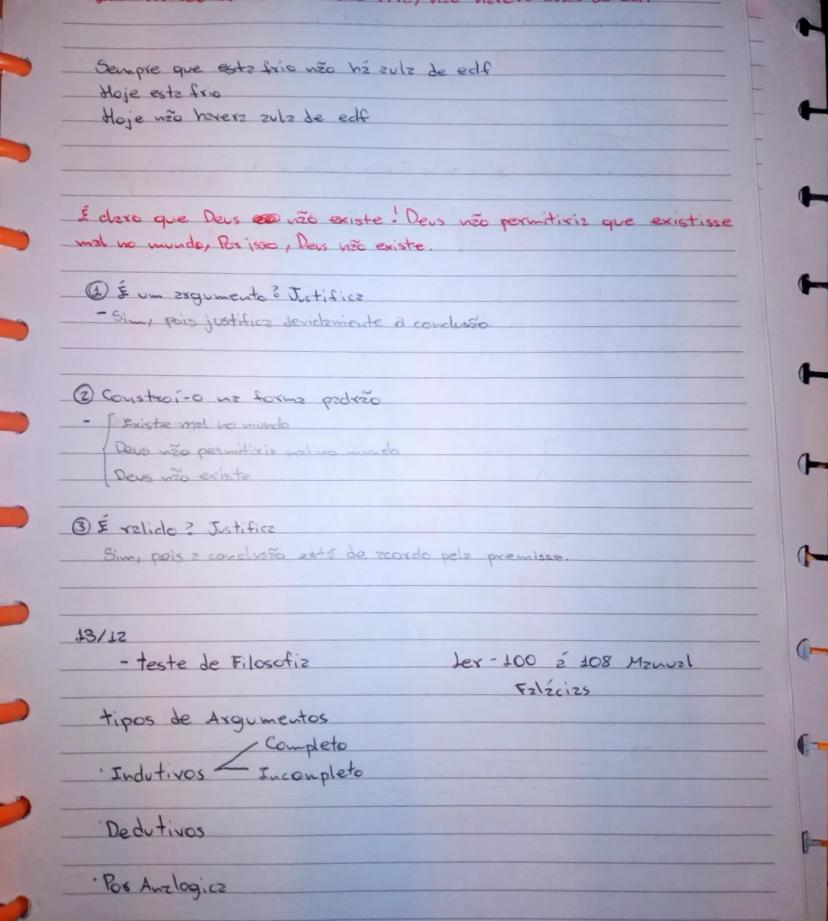 Sempre que esta frio não há aula de edf
Hoje esta frio
Hoje não havera aula de edf
É claro que Deus não existe! Deus não permitiria que existisse
mal no mundo, Por isso, Deus não existe.
① É um argumento? Justifica
- Sim, pois justifica devidamente a conclusão
② Constroí-o na forma padrão
- Existe mal no mundo
Deus não permitiria mal no mundo
Deus não existe
③ É valido? Justifica
Sim, pois a conclusão está de acordo pela premissa.
13/12
- teste de Filosofia Ler - 100 á 108 Manual
Falácias
tipos de Argumentos
Completo
· Indutivos Incompleto
Dedutivos
· Por Analogica